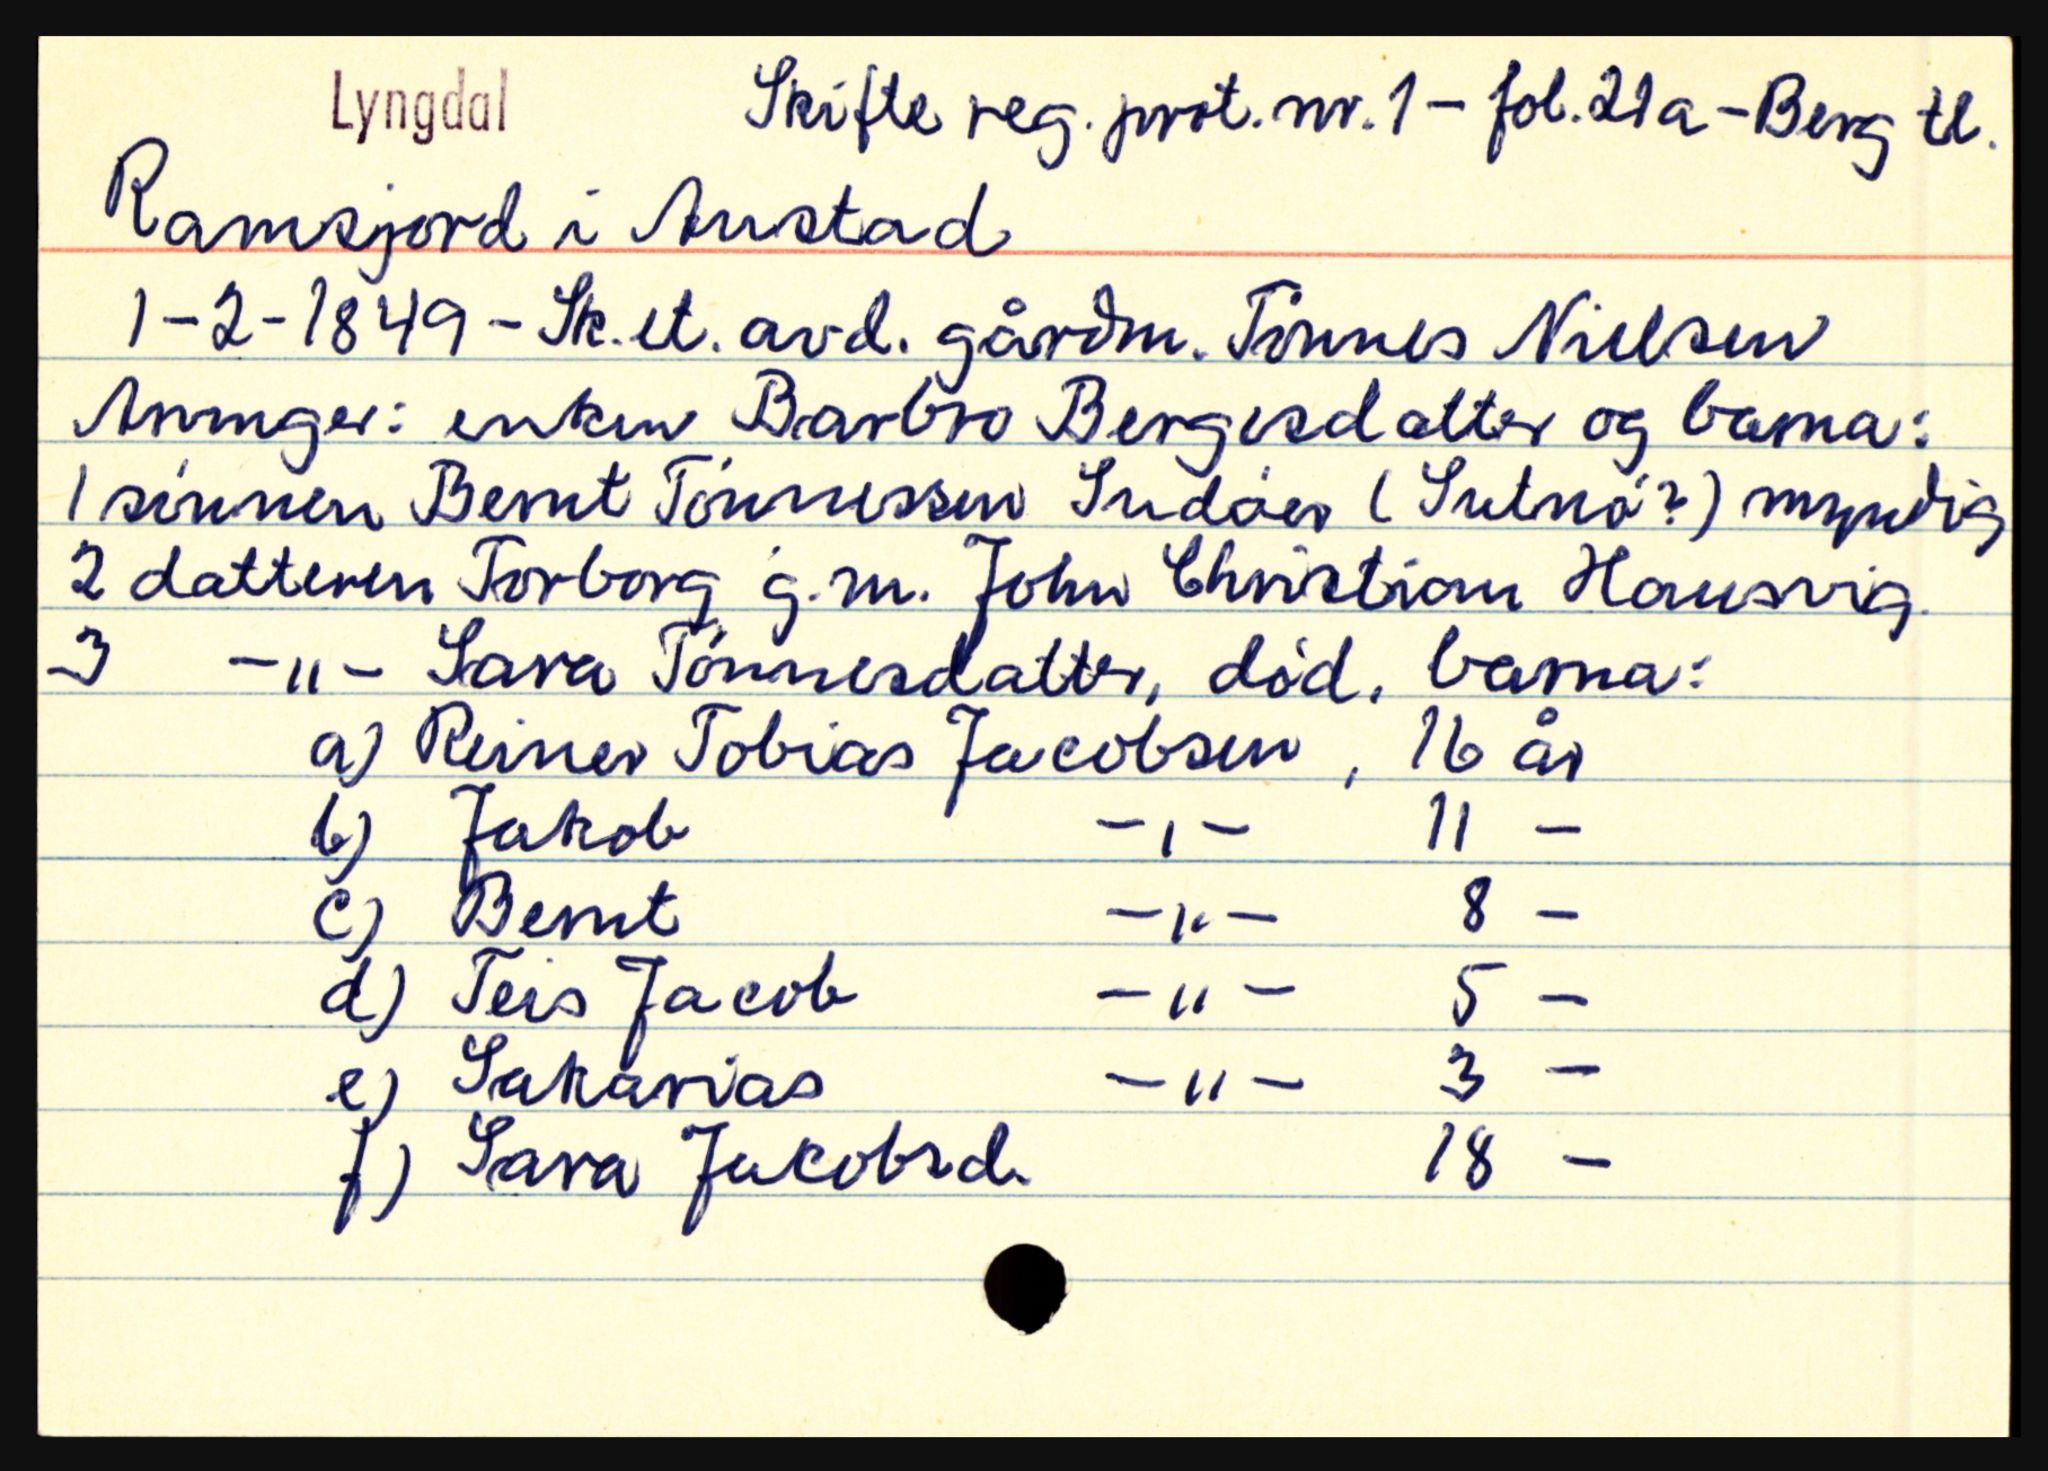 Lyngdal Skifte reg. prot. nr. 1 - fol. 21a - Berg tl.
Ramsjord i Austad
1-2-1849 - Sk. et. avd. gårdm. Tønnes Nielsen
Arvinger: enken Barbro Bergesdatter og barna:
1 sønnen Bernt Tønnessen Sudøer (Sutnø?) myndig
2 datteren Torborg g.m. John Christian Hausvig.
3 -"- Sara Tønnesdatter, død, barna:
a) Reiner Tobias Jacobsen, 16 år
b) Jakob -"- 11 -
c) Bernt -"- 8 -
d) Teis Jacob -"- 5 -
e) Sakarias -"- 3 -
f) Sara Jacobsd. 18 -